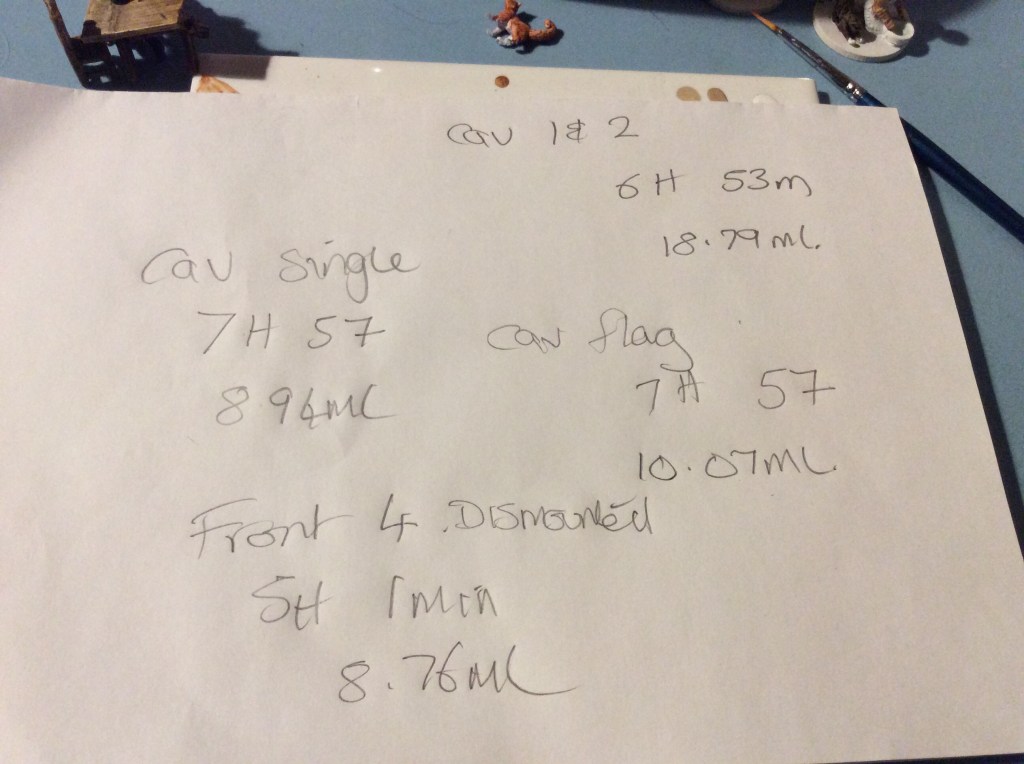 Cav 1 & 2
6H 53m
18.79ml.
Cav Single
7H 57
8 94ml
Cav flag
7H 57
10.07ml.
Front 4 Dismounted
5H 1min
8.76ml